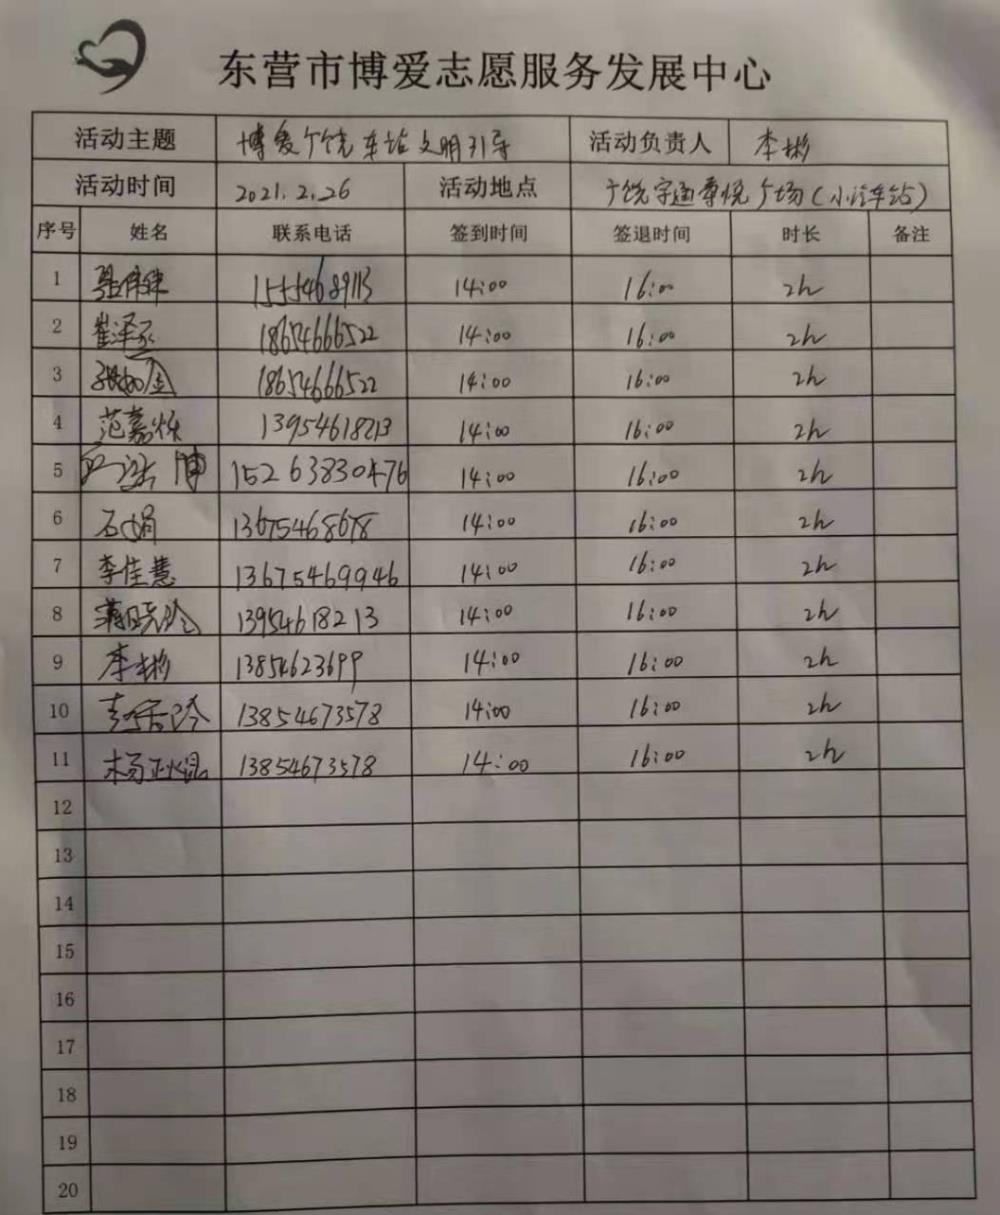 东营市博爱志愿服务发展中心
活动主题 博爱广饶车站文明引导 活动负责人 李彬
活动时间 2021.2.26 活动地点 广饶宇通尊悦广场(小汽车站)
序号 姓名 联系电话 签到时间 签退时间 时长 备注
1 15554689113 14:00 16:00 2h
2 崔泽 18654666522 14:00 16:00 2h
3 18654666522 14:00 16:00 2h
4 范嘉烁 13954618213 14:00 16:00 2h
5 15263830476 14:00 16:00 2h
6 石娟 13675468678 14:00 16:00 2h
7 李佳慧 13675469946 14:00 16:00 2h
8 13954618213 14:00 16:00 2h
9 李彬 13854623699 14:00 16:00 2h
10 13854673578 14:00 16:00 2h
11 杨正焜 13854673578 14:00 16:00 2h
12
13
14
15
16
17
18
19
20